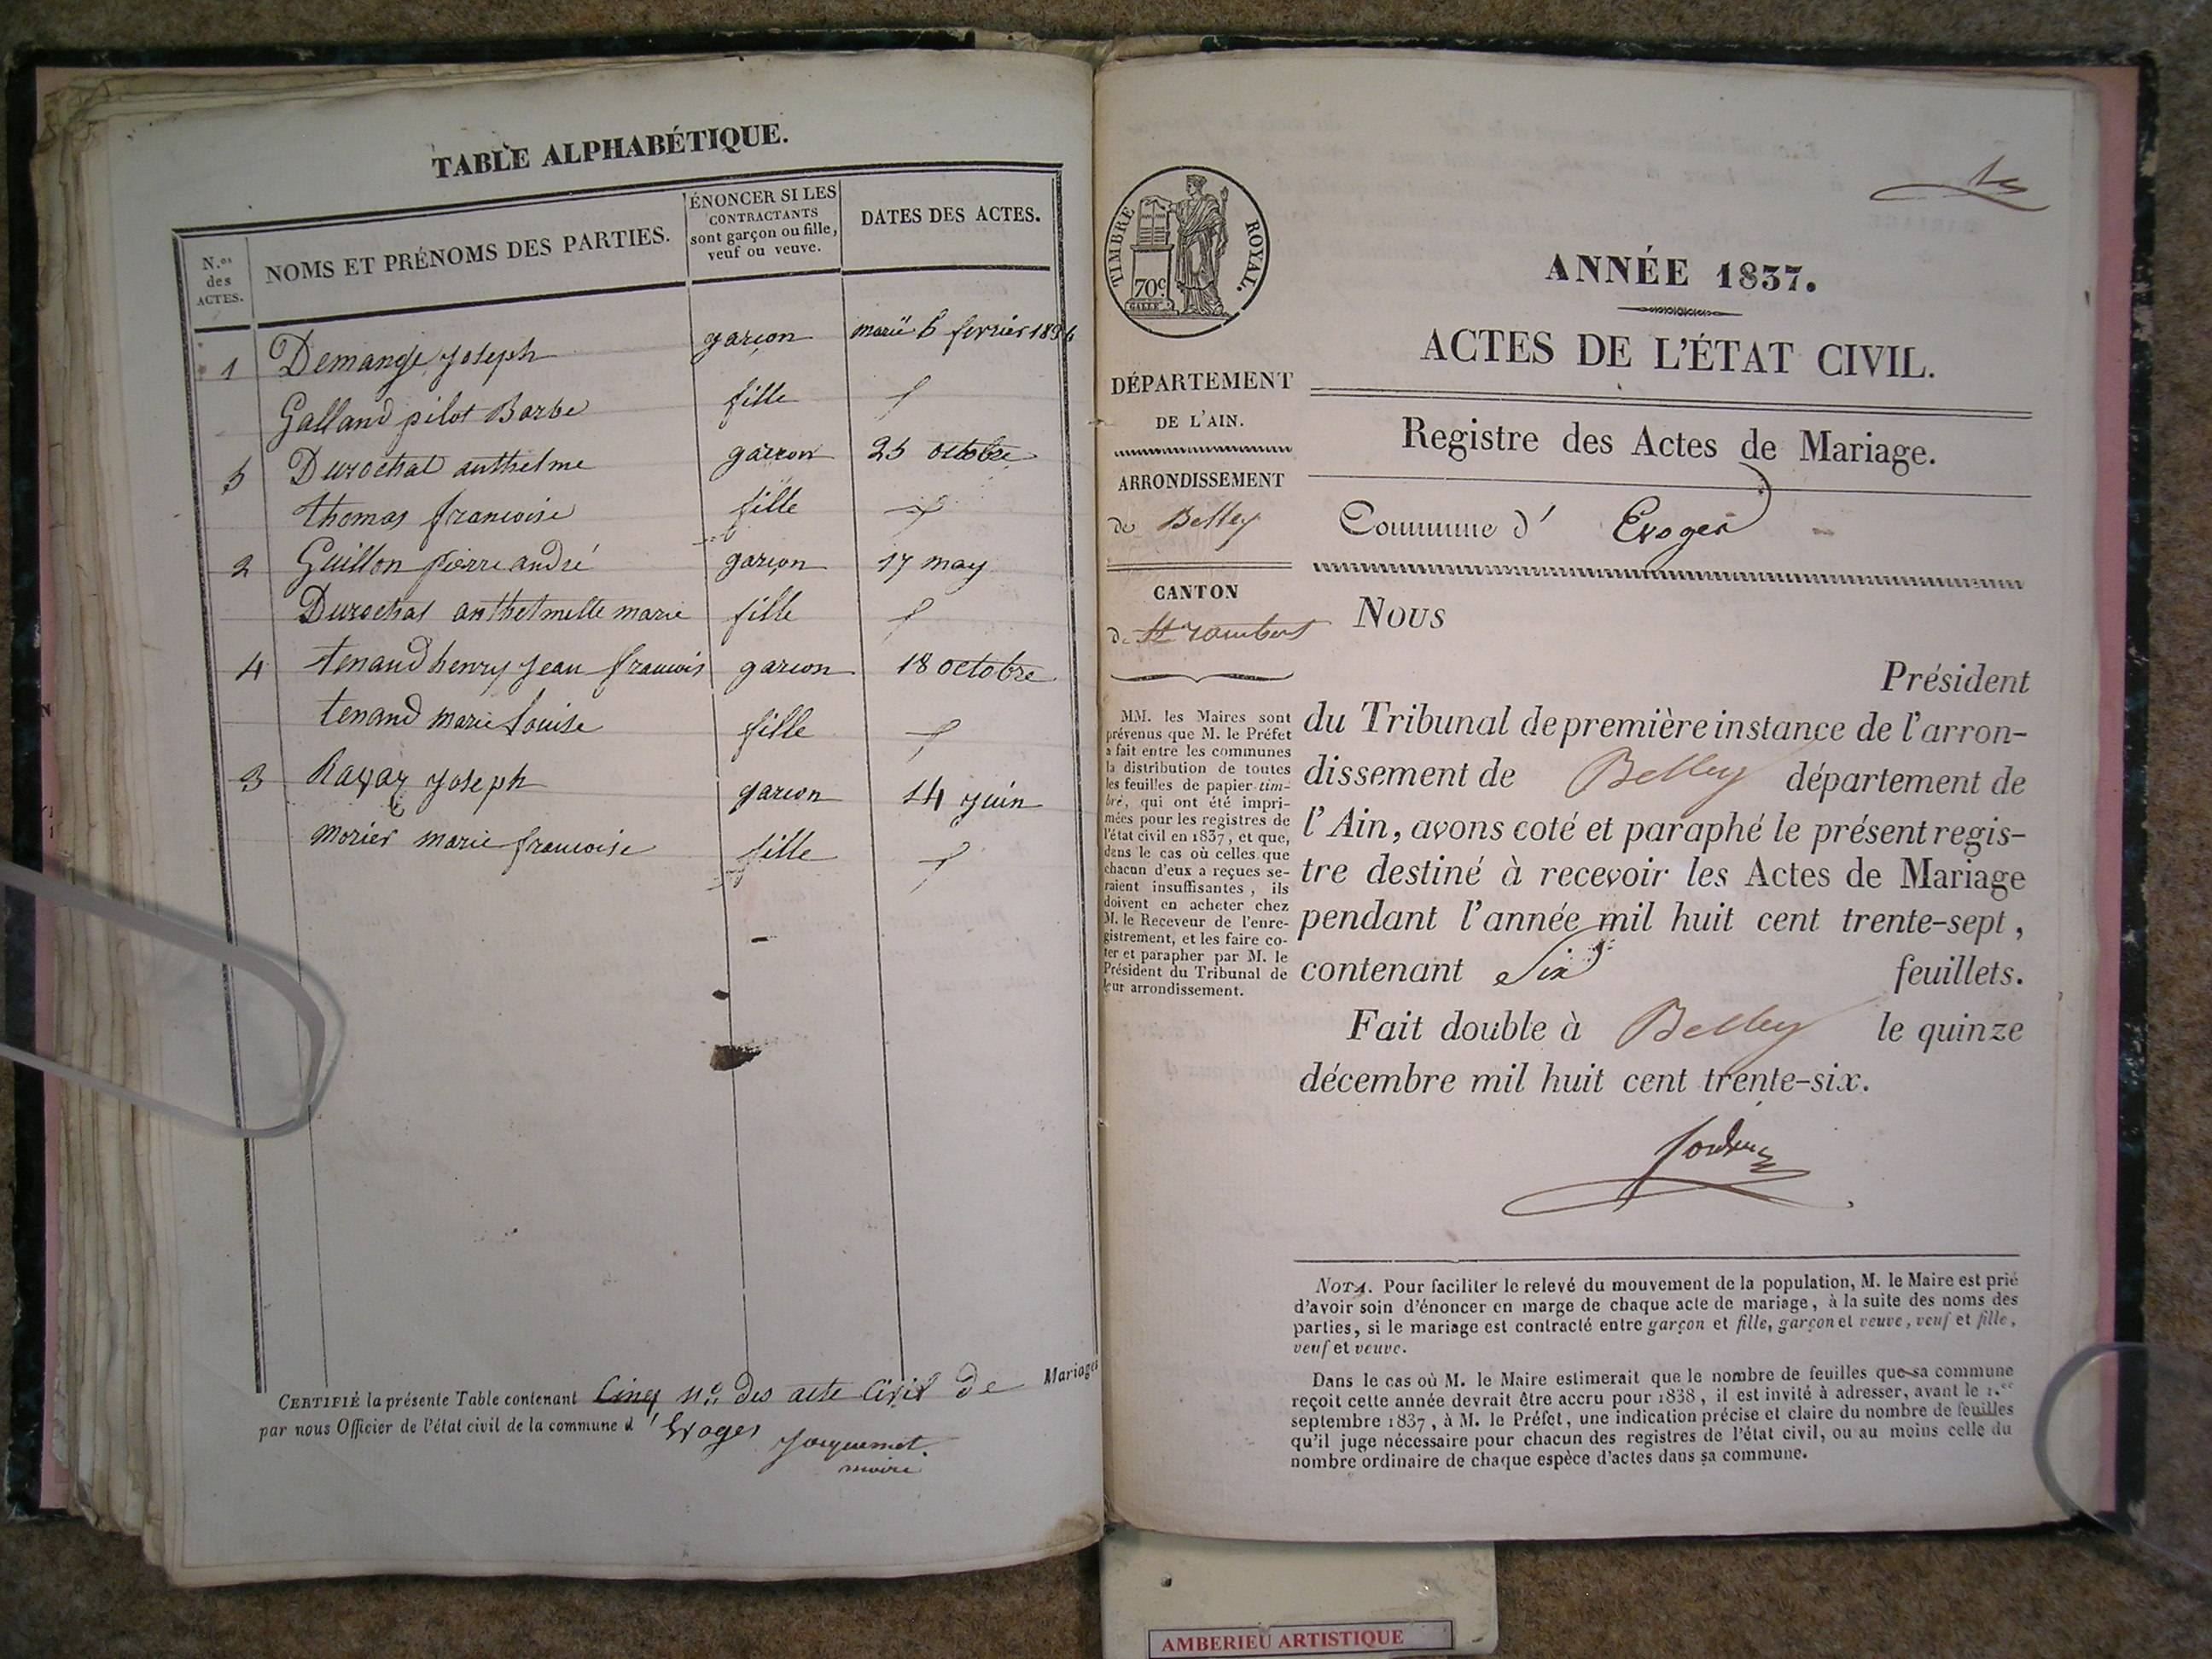 TABLE ALPHABÉTIQUE.
N.os des ACTES.
NOMS ET PRÉNOMS DES PARTIES.
ÉNONCER SI LES
CONTRACTANTS
sont garçon ou fille,
veuf ou veuve.
DATES DES ACTES.
1 Demange Joseph garçon marié 6 fevrier 1836
Galland pilot Barbe fille
5 Durochat anthelme garçon 25 octobre
thomas francoise fille
2 Guillon pierre andré garçon 17 may
Durochat anthelmelle marie fille
4 tenand henry Jean francois garcon 18 octobre
tenand marie Louise fille
3 Ravay Joseph garcon 14 juin
morier marie francoise fille
CERTIFIÉ la présente Table contenant Cinq n.o des acte Civil de Mariages
par nous Officier de l'état civil de la commune d'Evoges
Jacquemet
maire
TIMBRE ROYAL.
70c
GALLE
ANNÉE 1837.
ACTES DE L'ÉTAT CIVIL.
Registre des Actes de Mariage.
DÉPARTEMENT
DE L'AIN.
ARRONDISSEMENT
de Belley
CANTON
de St rambert
Commune d' Evoges
MM. les Maires sont
prévenus que M. le Préfet
a fait entre les communes
la distribution de toutes
les feuilles de papier tim-
bré, qui ont été impri-
mées pour les registres de
l'état civil en 1837, et que,
dans le cas où celles que
chacun d'eux a reçues se-
raient insuffisantes, ils
doivent en acheter chez
M. le Receveur de l'enre-
gistrement, et les faire co-
ter et parapher par M. le
Président du Tribunal de
leur arrondissement.
Nous
Président
du Tribunal de première instance de l'arron-
dissement de Belley département de
l'Ain, avons coté et paraphé le présent regis-
tre destiné à recevoir les Actes de Mariage
pendant l'année mil huit cent trente-sept,
contenant Six feuillets.
Fait double à Belley le quinze
décembre mil huit cent trente-six.
NOTA. Pour faciliter le relevé du mouvement de la population, M. le Maire est prié
d'avoir soin d'énoncer en marge de chaque acte de mariage, à la suite des noms des
parties, si le mariage est contracté entre garçon et fille, garçon et veuve, veuf et fille,
veuf et veuve.
Dans le cas où M. le Maire estimerait que le nombre de feuilles que sa commune
reçoit cette année devrait être accru pour 1838, il est invité à adresser, avant le 1.er
septembre 1837, à M. le Préfet, une indication précise et claire du nombre de feuilles
qu'il juge nécessaire pour chacun des registres de l'état civil, ou au moins celle du
nombre ordinaire de chaque espèce d'actes dans sa commune.
AMBERIEU ARTISTIQUE